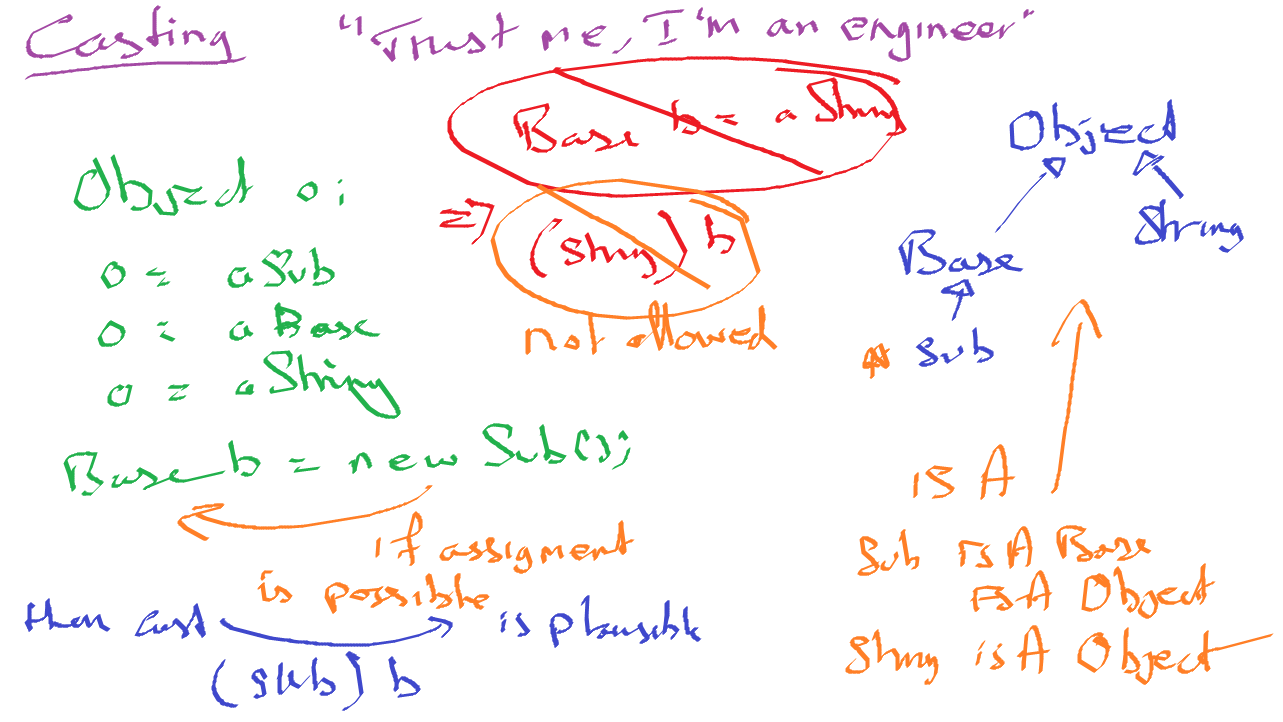 Casting "Trust me, I'm an engineer"
Base b = a String
=> (String) b
not allowed
Object o;
o = a Sub
o = a Base
o = a String
Base b = new Sub();
if assigment
is possible
then cast is plausible
(Sub) b
Object
String
Base
Sub
is A
Sub isA Base
isA Object
String isA Object